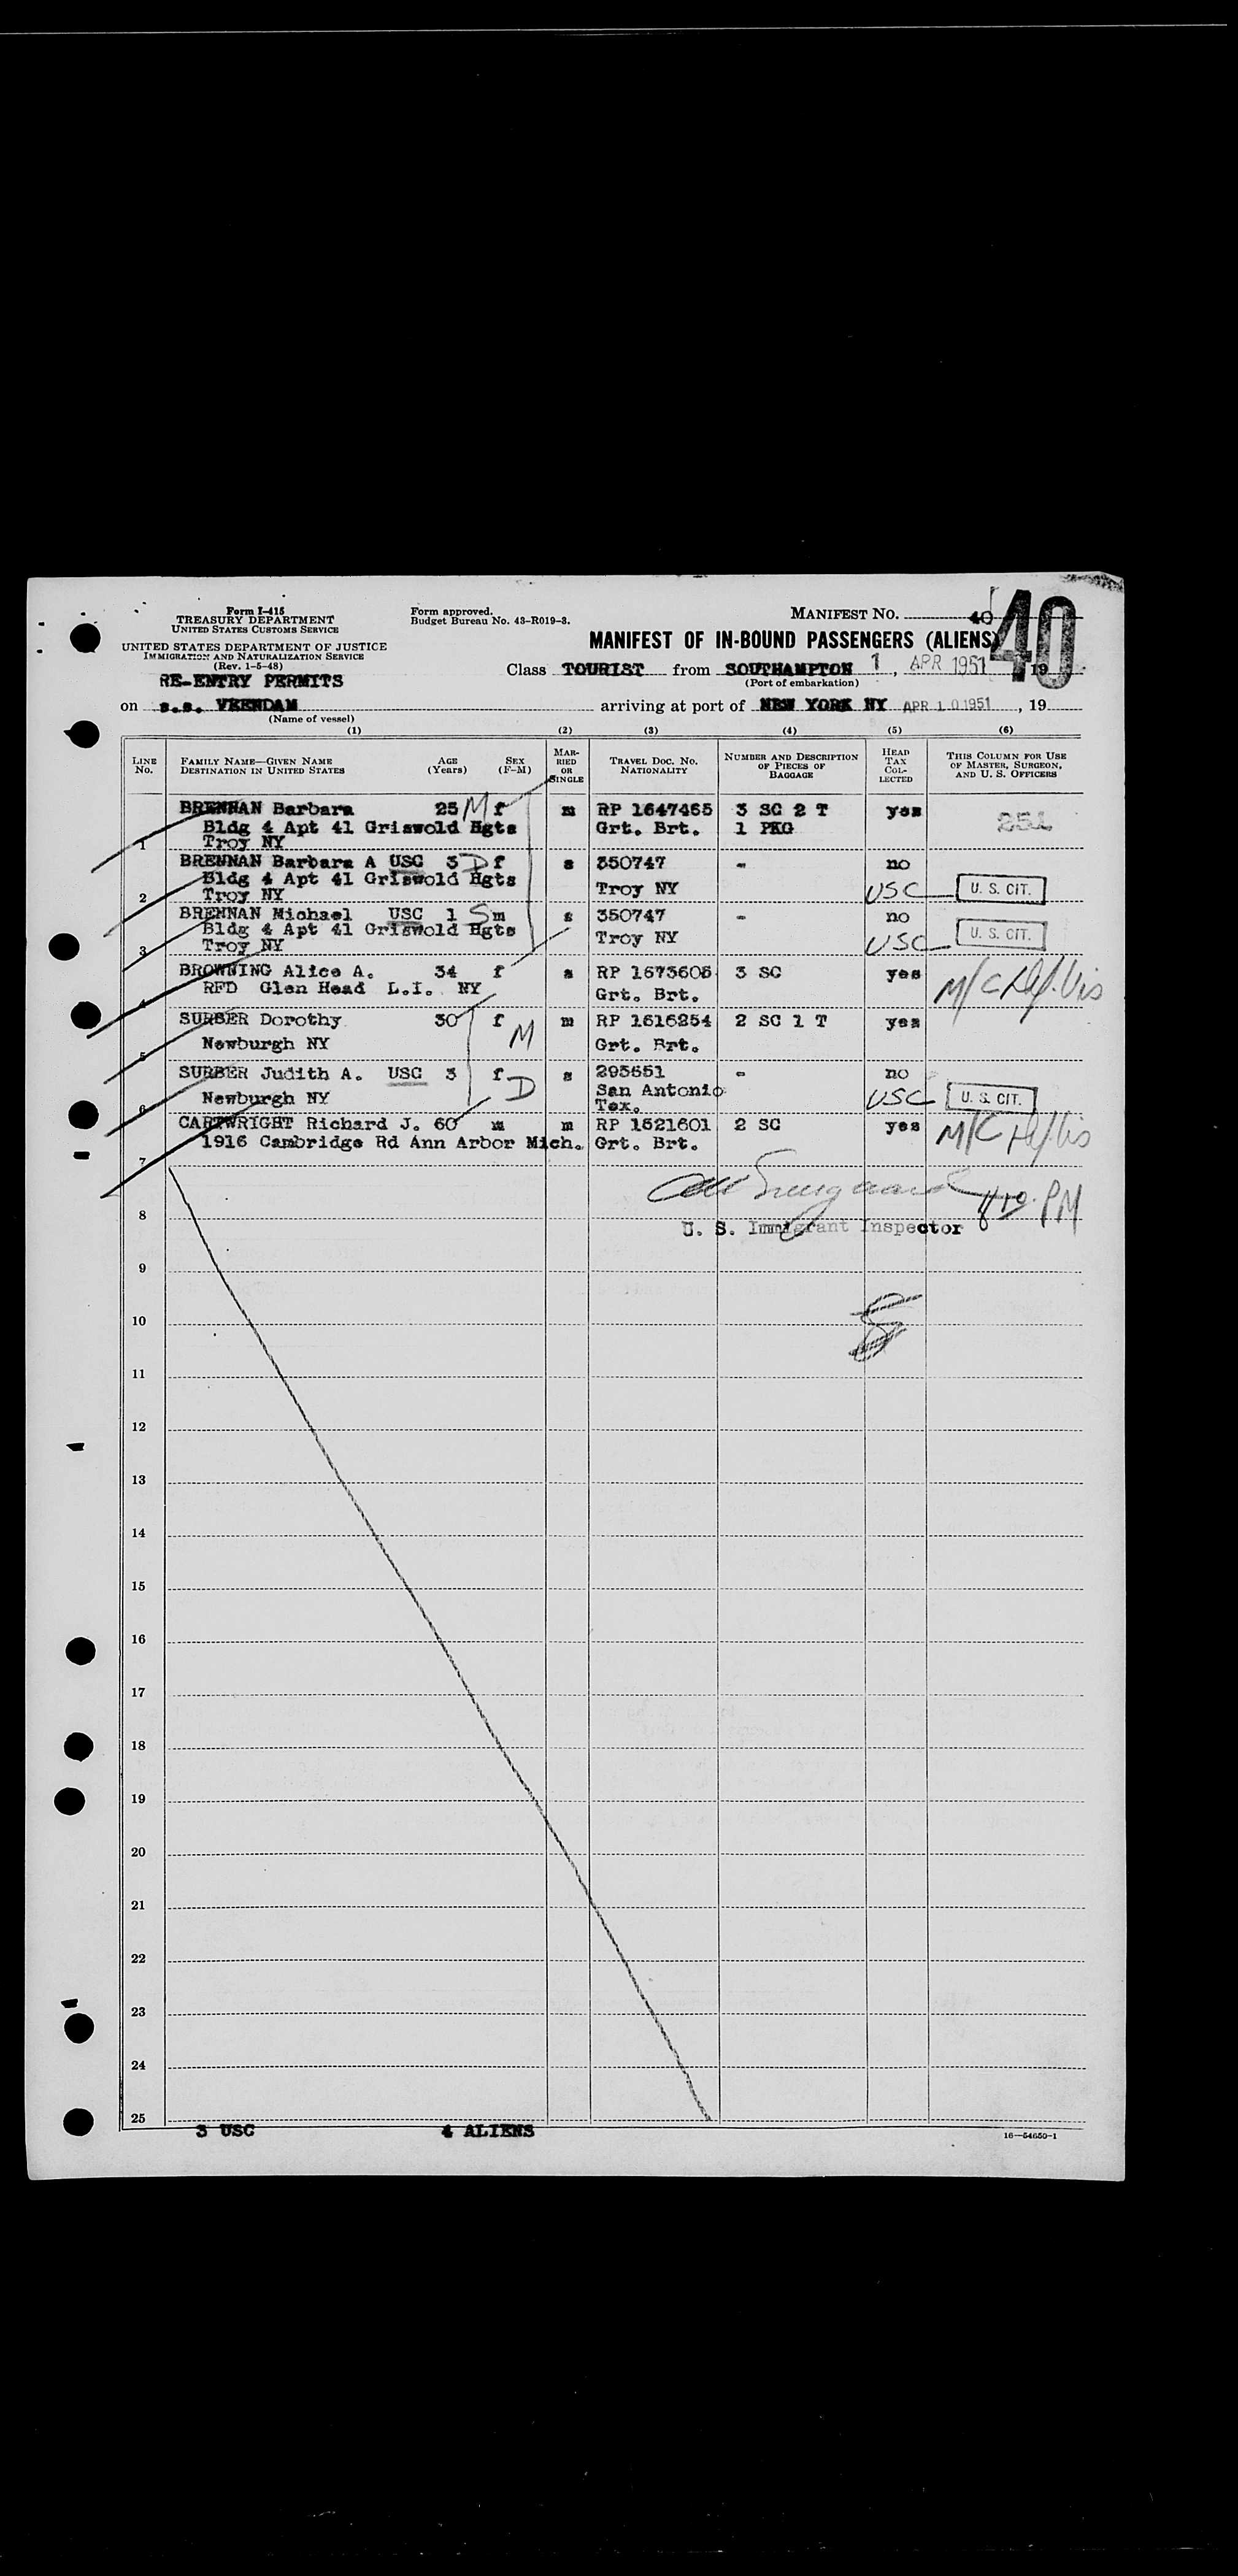 Form I-415
TREASURY DEPARTMENT
UNITED STATES CUSTOMS SERVICE
UNITED STATES DEPARTMENT OF JUSTICE
IMMIGRATION AND NATURALIZATION SERVICE
(Rev. 1-5-48)
Form approved.
Budget Bureau No. 43-R019-3.
MANIFEST NO. 40
40
MANIFEST OF IN-BOUND PASSENGERS (ALIENS)
RE-ENTRY PERMITS
Class TOURIST from SOUTHAMPTON 1, APR 1951, 19
(Port of embarkation)
on s.s. VEENDAM arriving at port of NEW YORK NY APR 10 1951, 19
(Name of vessel)
(1) (2) (3) (4) (5) (6)
LINE No.
FAMILY NAME—GIVEN NAME
DESTINATION IN UNITED STATES
AGE (Years)
SEX (F-M)
MARRIED OR SINGLE
TRAVEL DOC. NO.
NATIONALITY
NUMBER AND DESCRIPTION OF PIECES OF BAGGAGE
HEAD TAX COLLECTED
THIS COLUMN FOR USE OF MASTER, SURGEON, AND U. S. OFFICERS
BRENNAN Barbara 25 M f m RP 1647465 3 SC 2 T yes
Bldg 4 Apt 41 Griswold Hgts Grt. Brt. 1 PKG 251
1 Troy NY
BRENNAN Barbara A USC 3 D f s 350747 - no
Bldg 4 Apt 41 Griswold Hgts Troy NY USC U. S. CIT.
2 Troy NY
BRENNAN Michael USC 1 S m s 350747 - no
Bldg 4 Apt 41 Griswold Hgts Troy NY USC U. S. CIT.
3 Troy NY
BROWNING Alice A. 34 f s RP 1673608 3 SC yes M/C
4 RFD Glen Head L.I. NY Grt. Brt.
SURBER Dorothy 30 f M m RP 1616254 2 SC 1 T yes
5 Newburgh NY Grt. Brt.
SURBER Judith A. USC 3 f D s 295651 - no
6 Newburgh NY San Antonio Tex. USC U. S. CIT.
CARTWRIGHT Richard J. 60 m m RP 1521601 2 SC yes M/C
7 1916 Cambridge Rd Ann Arbor Mich. Grt. Brt.
PM
U. S. Immigrant Inspector
8
9
10
11
12
13
14
15
16
17
18
19
20
21
22
23
24
25
3 USC 4 ALIENS
16—54650-1